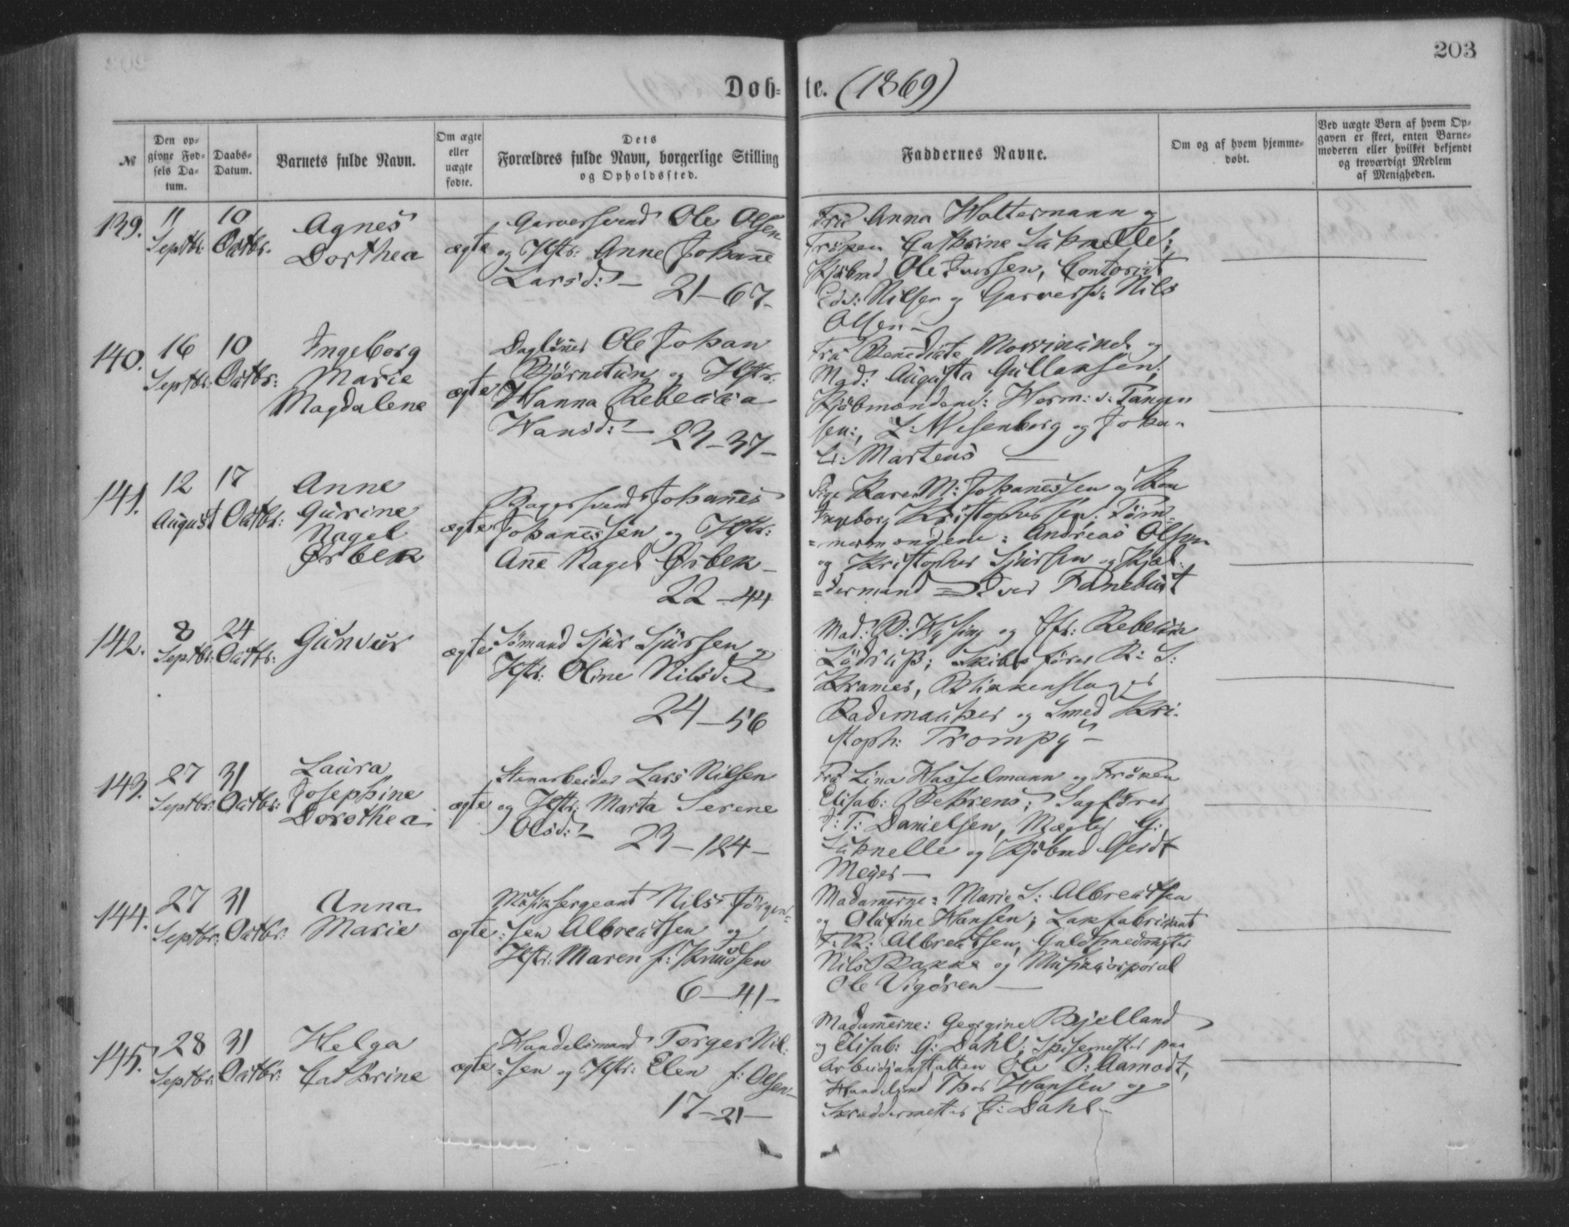 203
Døb- te. (1869)
№ Den op-givne Fød-sels Da-tum. Daabs-Datum. Barnets fulde Navn. Om ægte eller uægte fødte. Dets Forældres fulde Navn, borgerlige Stilling og Opholdssted. Faddernes Navne. Om og af hvem hjemme-døbt. Ved uægte Børn af hvem Op-gaven er skeet, enten Barne-moderen eller hvilket bekjendt og troværdigt Medlem af Menigheden.
139. 11 Septbr: 10 Octbr.
Agnes
Dorthea
ægte
Garversvend Ole Olsen
og Hstr: Anne Johanne
Larsd: –
21 – 67 –
Fru Anna Woltermann og
Frøken Cathrine
Kjøbmd Ole Iversen, Contorist
Edv: Nilsen og Garversv: Nils
Olsen –
140. 16 Septbr: 10 Octbr:
Ingeborg
Marie
Magdalene
ægte
Daglønner Ole Johan
Bjørnetun og Hstr:
Hanna Rebecca
Hansd: –
23 – 37 –
Fru Benedicte og
Mad: Augusta Gullaksen;
Kjøbmændene: Herm: D:
og Joha-
Martens –
141. 12 August 17 Octbr:
Anne
Gurine
Nagel
Ørbek
ægte
Bagersvend Johannes
Johannessen og Hstr:
Anne Nagel Ørbek –
22 – 44
Karen M: Johannessen og
Ingeborg Kristophersen; Tøm-
=mermændene: Andreas Olsen
og Kristopher Sjursen og
=dermand
142. 8 Septbr: 24 Octbr:
Gunvur
ægte
Sømand Sjur Sjursen og
Hstr: Oline Nilsd:
24 – 56
Mad: og Jfr: Rebecca
Lødrup; Skibsfører R: S:
Kramer, Blikkenslager
Rademacher og Smed Kri-
stoph: Trompy –
143. 27 Septbr: 31 Octbr:
Laura
Josephine
Dorothea
ægte
Stenarbeider Lars Nilsen
og Hstr: Marta Serene
Olsd: –
23 – 124 –
Fru Lina Hasselmann og Frøken
Elisab: Behrens; Sagfører
Danielsen, Mægler G:
og Kjøbmd Gerdt
Meyer –
144. 27 Septbr: 31 Octbr:
Anna
Marie
ægte
Musiksergeant Nils Jørgen-
=sen Albrectsen og
Hstr: Maren f: Knudsen
6 – 41 –
Madamerne: Marie S: Albrectsen
og Olufine Hansen; Lakfabrikant
Albrectsen, Guldsmedmester
Nils Bakke og Musikcorporal
Ole Vigøren –
145. 28 Septbr: 31 Octbr:
Helga
Cathrine
ægte
Handelsmand Torger Nil-
=sen og Hstr: Elen f: Olsen –
17 – 21 –
Madamerne: Georgine Bjelland
og Elisab: G: Dahl; Spisemester paa
Arbeidsanstalten Ole O: Aamodt,
Handelsmd Thor Hansen og
Skræddermester J: Dahl –